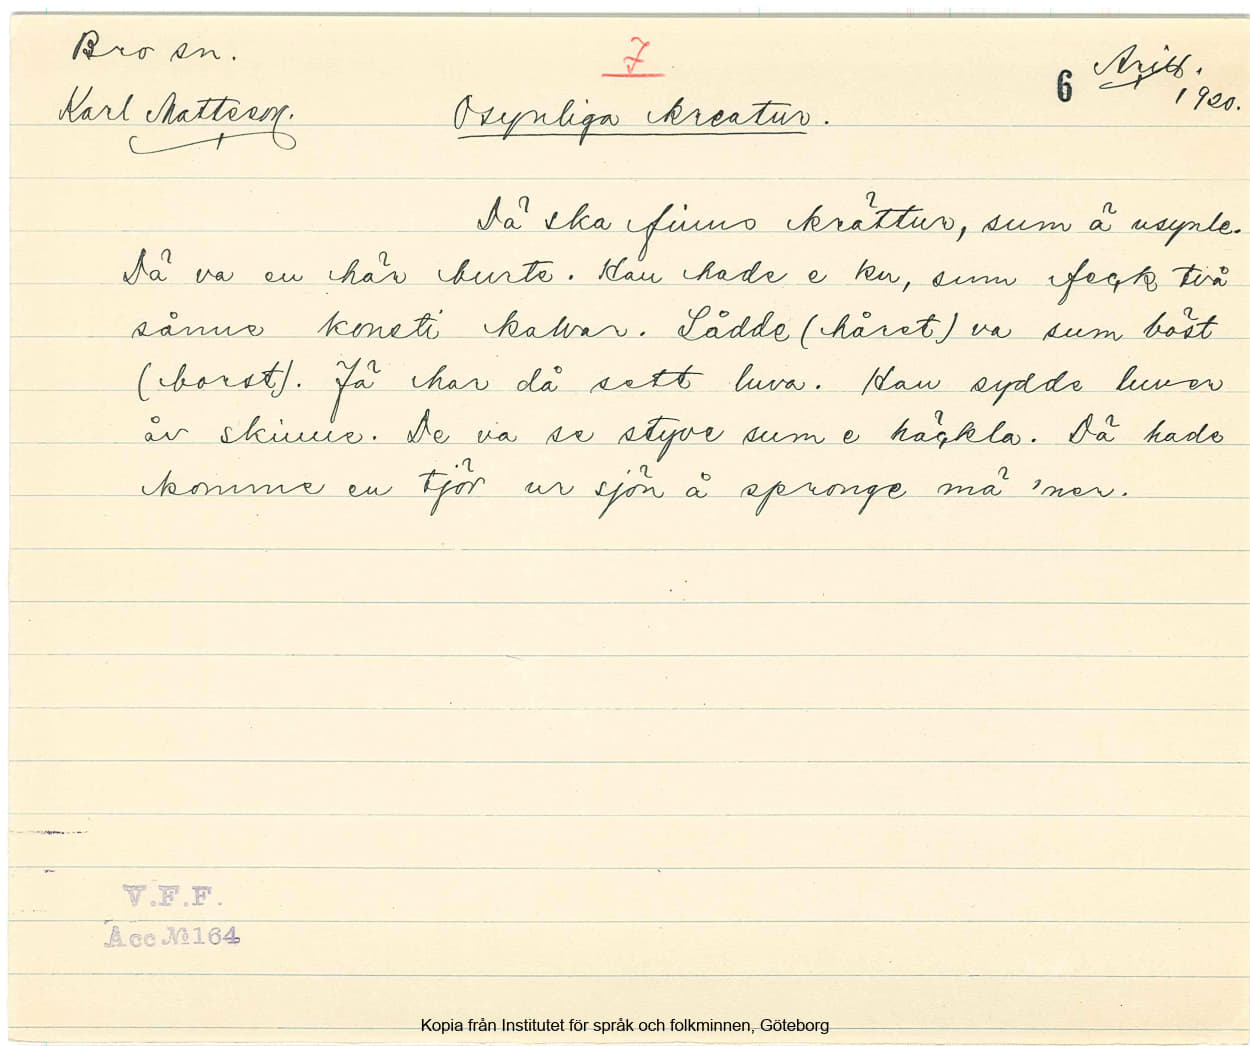 Bro sn.
7
6
1920.
Karl Mattsson.
Osynliga kreatur.
Dä ska finns krättur, sum ä usynle.
Dä va en här burte. Han hade e ku, sum feck två
sånne konsti kalvar. Lådde (håret) va sum bäst
(borst). Jä har då sett luva. Han sydde luver
åv skinne. De va se styve sum e häckla. Dä hade
komme en tjör ur sjön å spronge mä 'ner.
V.F.F.
Acc № 164
Kopia från Institutet för språk och folkminnen, Göteborg